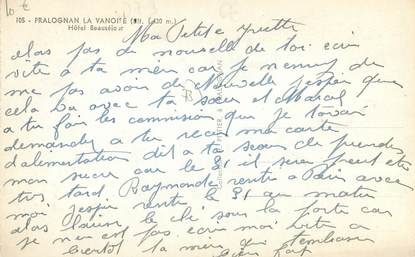 105 - PRALOGNAN LA VANOISE (Alt. 1.430 m.)
Hôtel Beauséjour
Ma Petite Yvette
alors pas de nouvelle de toi ecri
vite a ta mèr car je m'ennuy de
me pas avoir de Nouvelle j'espèr que
cela va avec ta sœur et Marcel
a tu fait les commision que je tavai
demander a tu recu ma carte
d'alimentation dit a ta sœur de prendre
mon sucre car le 31 il sera peut etre
trop tard Raymonde rentre a Paris avec
moi j'espèr rentré le 31 au matin
alors laisse la clé sous la porte car
je n'en est pas ecri moi vite a
bientot ta mèr qui t'embrasse
bien fort